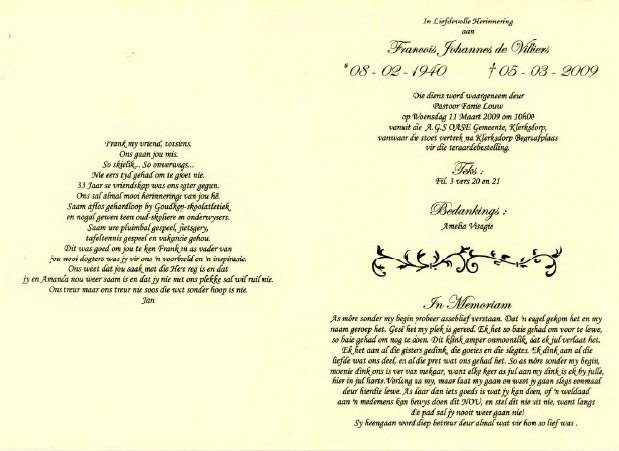 Frank my vriend, totsiens.
Ons gaan jou mis.
So skielik... So onverwags...
Nie eers tyd gehad om te groet nie.
33 Jaar se vriendskap was ons gegun.
Ons sal almal mooi herinneringe van jou hê.
Saam atlos gehardloop by Goudkop-skoolatletiek
en nogal gewen teen oud-skoliere en onderwysers.
Saam ure pluimbal gespeel, fietsgery,
tafeltennis gespeel en vakansie gehou.
Dit was goed om jou te ken Frank as vader van
jou mooi dogters was jy vir ons 'n voorbeeld en 'n inspirasie.
Ons weet dat jou saak met die Here reg is en dat
jy en Amanda nou weer saam is en dat jy nie met ons plekke sal wil ruil nie.
Ons treur maar ons treur nie soos die wat sonder hoop is nie.
Jan
In Liefdevolle Herinnering
aan
Francois Johannes de Villiers
*08 - 02 - 1940 †05 - 03 - 2009
Die diens word waargeneem deur
Pastoor Fanie Louw
op Woensdag 11 Maart 2009 om 10h00
vanuit die A.G.S OASE Gemeente, Klerksdorp,
vanwaar die stoet vertrek na Klerksdorp Begraafplaas
vir die teraardebestelling.
Teks :
Fil. 3 vers 20 en 21
Bedankings :
Amelia Visagie
In Memoriam
As môre sonder my begin probeer asseblief verstaan. Dat 'n engel gekom het en my
naam geroep het. Gesê het my plek is gereed. Ek het so baie gehad om voor te lewe,
so baie gehad om nog te doen. Dit klink amper onmoontlik, dat ek jul verlaat het.
Ek het aan al die gisters gedink, die goeies en die slegtes. Ek dink aan al die
liefde wat ons deel, en al die pret wat ons gehad het. So as môre sonder my begin,
moenie dink ons is ver van mekaar, want elke keer as jul aan my dink is ek by julle,
hier in jul harte. Verlang na my, maar laat my gaan en weet jy gaan slegs eenmaal
deur hierdie lewe. As daar dan iets goeds is wat jy kan doen, of 'n weldaad
aan 'n medemens kan bewys doen dit NOU, en stel dit nie uit nie, want langs
die pad sal jy nooit weer gaan nie!
Sy heengaan word diep betreur deur almal wat vir hom so lief was .